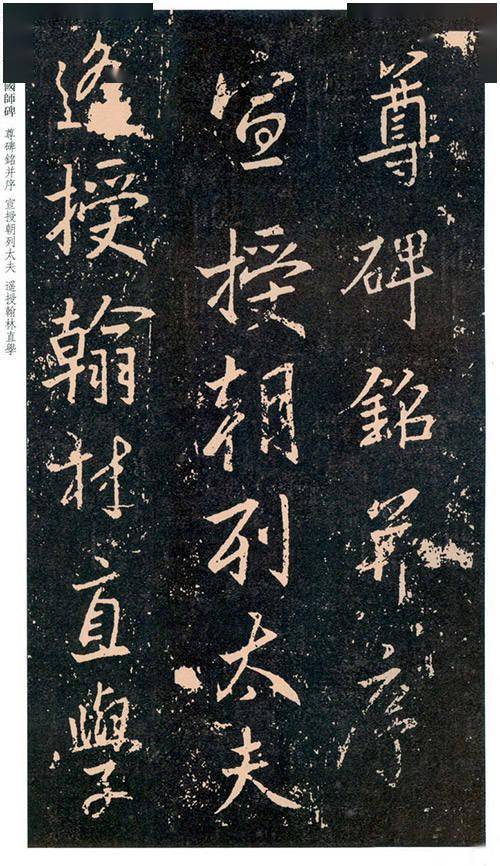 尊碑銘并序
宣授朝列太夫
遥授翰林直學
國師碑 尊碑銘并序 宣授朝列太夫 遥授翰林直學